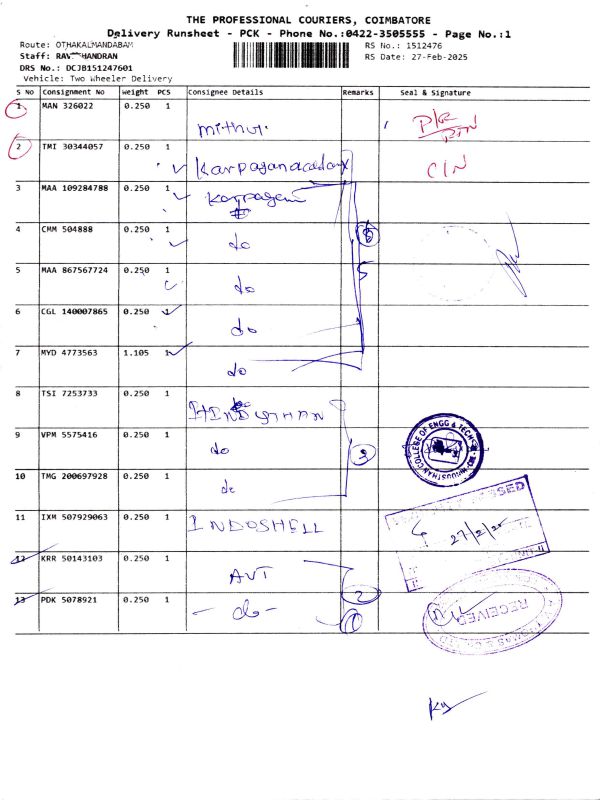 THE PROFESSIONAL COURIERS, COIMBATORE
Delivery Runsheet - PCK - Phone No.:0422-3505555 - Page No.:1
Route: OTHAKALMANDABAM
RS No.: 1512476
Staff: RAV HANDRAN
RS Date: 27-Feb-2025
DRS No.: DCJB151247601
Vehicle: Two Wheeler Delivery
S No Consignment No Weight PCS Consignee Details Remarks Seal & Signature
1 MAN 326022 0.250 1
mithun
2 TMI 30344057 0.250 1
Karpagan academy CIN
3 MAA 109284788 0.250 1
Karpagam
4 CMM 504888 0.250 1
do
5 MAA 867567724 0.250 1
do
5
6 CGL 140007865 0.250 1
do
7 MYD 4773563 1.105 1
do
8 TSI 7253733 0.250 1
HINDUSTHAN
9 VPM 5575416 0.250 1
do
3
HINDUSTHAN COLLEGE OF ENGG & TECH
10 TMG 200697928 0.250 1
do
11 IXM 507929063 0.250 1
INDOSHELL
27/2/25
12 KRR 50143103 0.250 1
AVT
2
13 PDK 5078921 0.250 1
- do -
1
RECEIVED